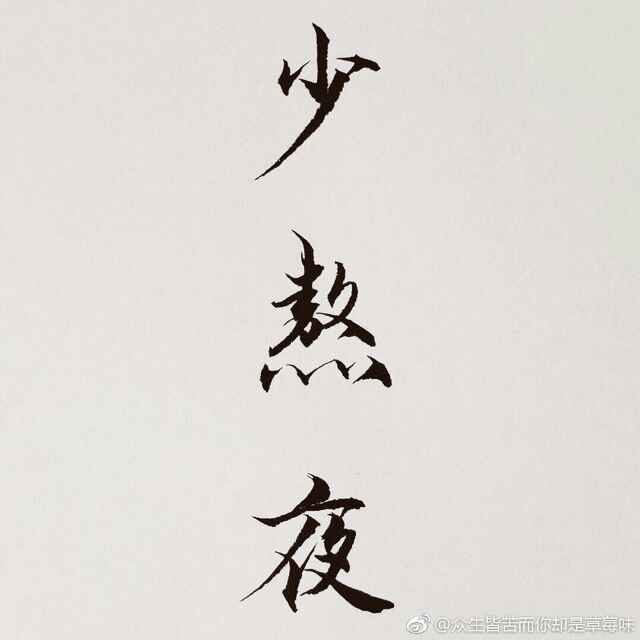 少熬夜
@众生皆苦而你却是草莓味